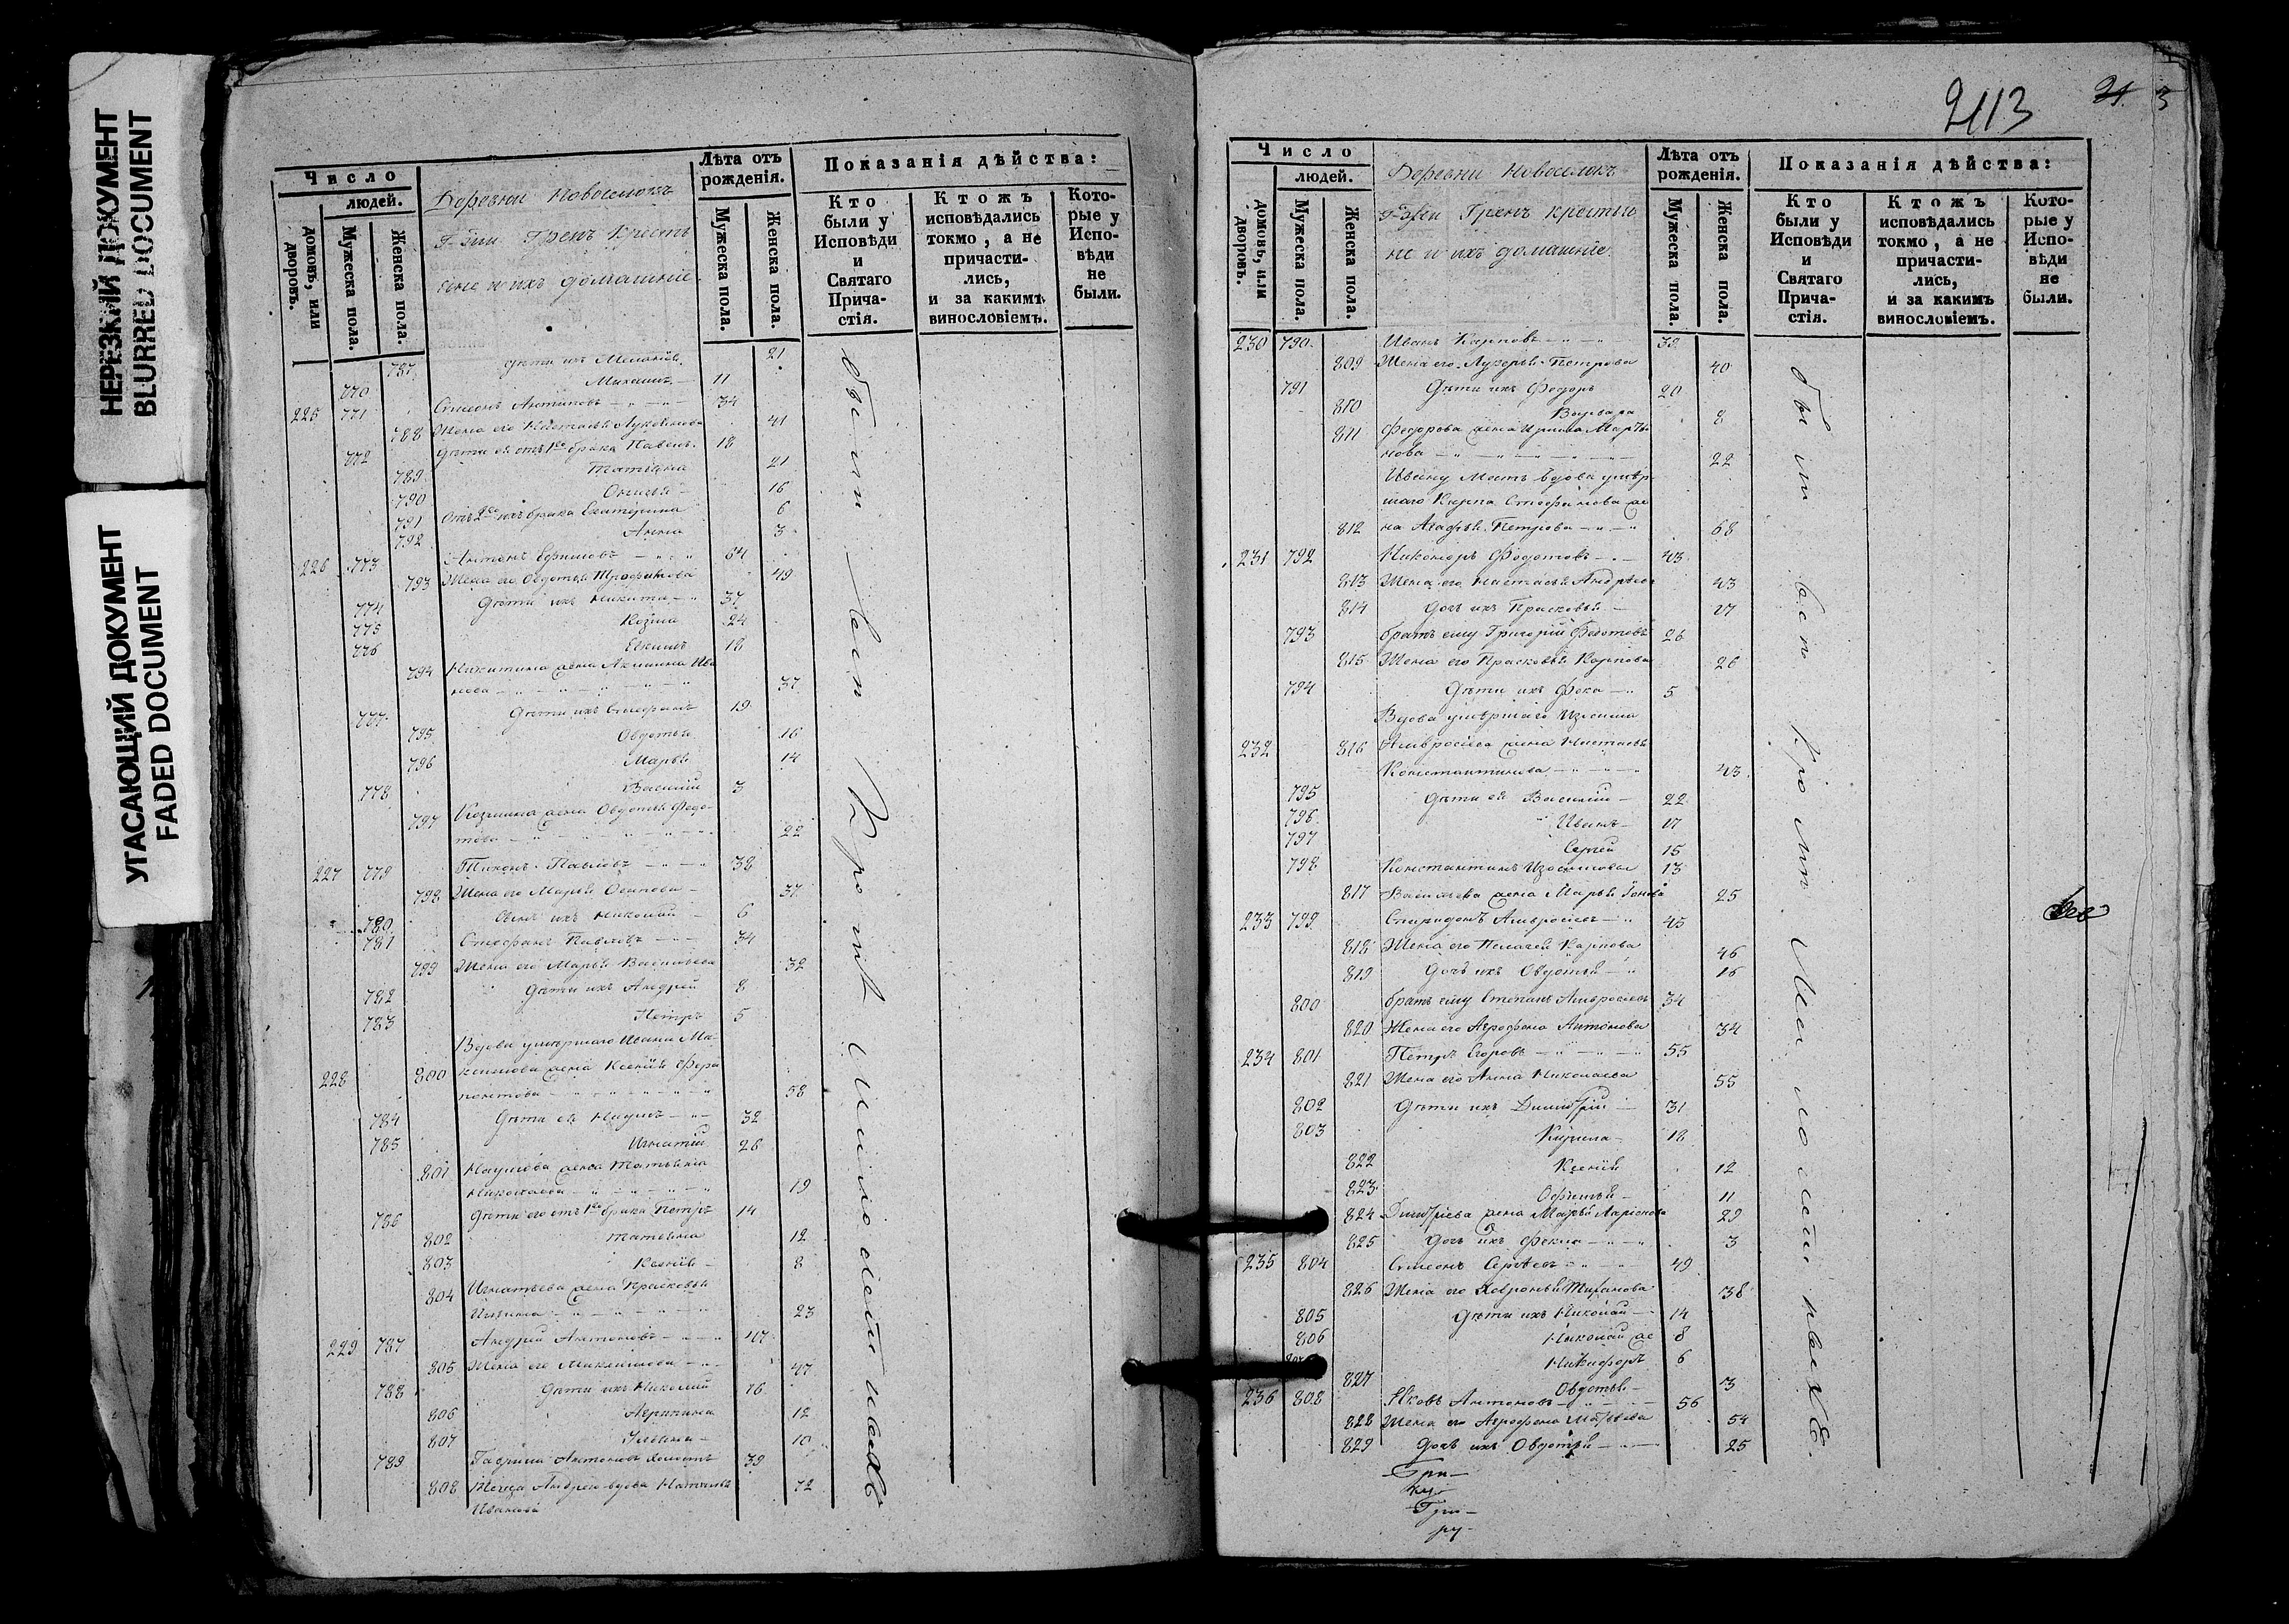 НЕРЕЗКИЙ ДОКУМЕНТ
BLURRED DOCUMENT
УГАСАЮЩИЙ ДОКУМЕНТ
FADED DOCUMENT
Число
людей.
домовъ, или дворовъ.
Мужеска пола.
Женска пола.
Деревни Новоселокъ
Г-жи Гренъ Кресть
яне и ихъ домашніе
Лѣта отъ рожденія.
Мужеска пола.
Женска пола.
Показанія дѣйства:
Кто были у Исповѣди и Святаго Причастія.
Ктожъ исповѣдались токмо, а не причастились, и за какимъ винословіемъ.
Которые у Исповѣди не были.
787 дѣти ихъ Меланія 21
770 Михаилъ 11
225 771 Симеонъ Антиповъ 34
788 Жена его Настасья 41
772 Дѣти ея отъ 1го брака Павелъ 18
789 Татіана 21
790 16
791 Отъ 2го ихъ брака Екатерина 6
792 Анна 3
226 773 Антонъ Ефимовъ 64
793 Жена его Овдотья Трофимова 49
774 Дѣти ихъ Никита 37
775 Козма 24
776 Екимъ 18
794 Никитина жена Акилина Ива
нова 37
777 Дѣти ихъ Стефанъ 19
795 Овдотья 16
796 Марья 14
778 Василій 3
797 Козмина жена Овдотья Федо
това 22
227 779 Тихонъ Павловъ 38
798 Жена его Марья Осипова 37
780 Сынъ ихъ Николай 6
781 Стефанъ Павловъ 34
799 Жена его Марья Васильева 32
782 Дѣти ихъ Андрей 8
783 Петръ 5
Вдова умершаго Ивана Ма-
228 800 ксимова жена Ксенія Фера
понтова 58
784 Дѣти ея Наумъ 32
785 Игнатій 26
801 Наумова жена Татьяна
Николаева 19
786 Дѣти его отъ 1го брака Петръ 14
802 Татьяна 12
803 Ксенія 8
804 Игнатьева жена Прасковья
23
229 787 Андрей Антоновъ 47
805 Жена его 47
788 Дѣти ихъ Николай 16
806 Агрипина 12
807 Ульяна 10
789 Гаврила Антоновъ холостъ 39
808 Андрею вдова Наталья 72
Иванова
были вси Кромѣ Малолѣтныхъ
2113
21.
3
Число
людей.
домовъ, или дворовъ.
Мужеска пола.
Женска пола.
Деревни Новоселокъ
Г-жи Гренъ крестья
не и ихъ домашніе
Лѣта отъ рожденія.
Мужеска пола.
Женска пола.
Показанія дѣйства:
Кто были у Исповѣди и Святаго Причастія.
Ктожъ исповѣдались токмо, а не причастились, и за какимъ винословіемъ.
Которые у Исповѣди не были.
230 790 Иванъ Карповъ 39
809 Жена его Лукерья Петрова 40
791 Дѣти ихъ Федоръ 20
810 Варвара 8
811 Федорова жена Ирина Марты
нова 22
Ивану Мать вдова умер
шаго Карпа Стефанова же
812 на Агафья Петрова 68
231 792 Никоноръ Федотовъ 43
813 Жена его Настасья Андрѣева 43
814 Дочь ихъ Прасковья 17
793 братъ ему Григорій Федотовъ 26
815 Жена его Прасковья Карпова 26
794 Дѣти ихъ Фока 5
Вдова умершаго Изосима
232 816 Амвросіева жена Настасья
Константинова 43
795 Дѣти ея Василій 22
796 Иванъ 17
797 Сергій 15
798 Константинъ Изосимовъ 13
817 Васильева жена Марья 25
233 799 Спиридонъ Амвросіевъ 45
818 Жена его Пелагея Карпова 46
819 Дочь ихъ Овдотья 16
800 братъ ему Степанъ Амвросіевъ 34
820 Жена его Агрофена Антонова 34
234 801 Петръ Егоровъ 55
821 Жена его Анна Николаева 55
802 Дѣти ихъ Димитрій 31
803 Кирила 18
822 Ксенія 12
823 11
824 Димитріева жена Марья Ларіонова 29
825 Дочь ихъ Фекла 3
235 804 Симеонъ Сергѣевъ 49
826 Жена его Хавронья 38
805 Дѣти ихъ Николай 14
806 Николай же 8
807 Никифоръ 6
827 Овдотья 3
236 808 Яковъ Антоновъ 56
828 Жена его Агрофена Матвѣева 54
829 Дочь ихъ Овдотья 25
были вси Кромѣ Малолѣтныхъ.
Гри-
Гри-